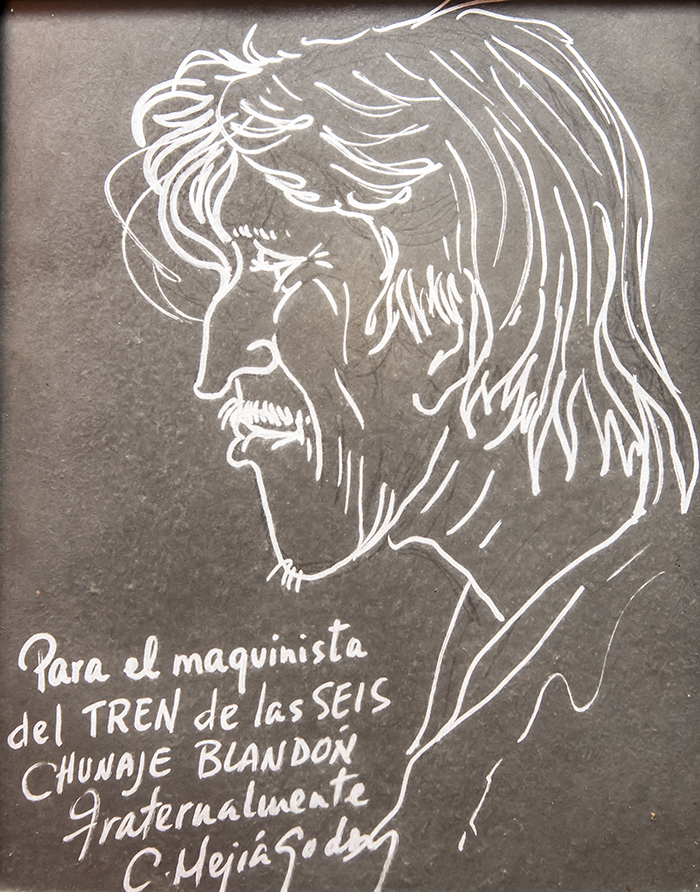 Para el maquinista
del TREN de las SEIS
CHUNAJE BLANDÓN
fraternalmente
C. Mejía Godoy